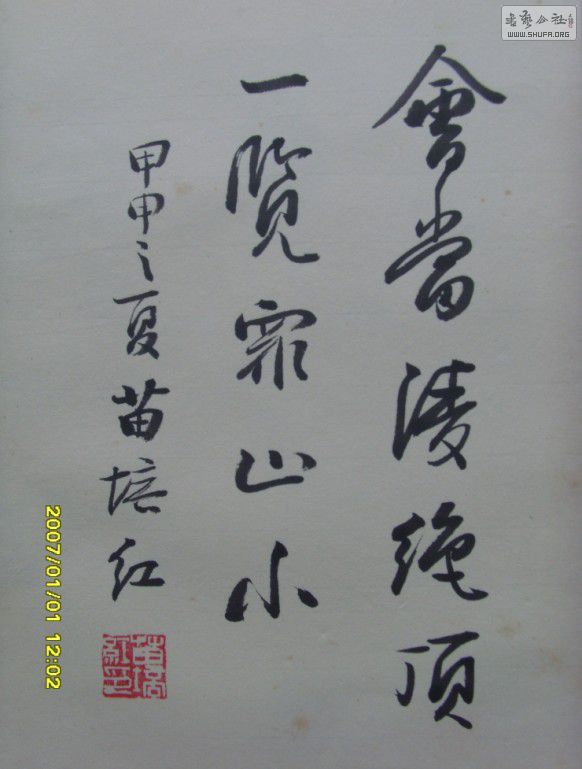 會當淩絶頂
一覽眾山小
甲申之夏苗培红
苗培紅印
2007/01/01 12:02
書藝公社
WWW.SHUFA.ORG